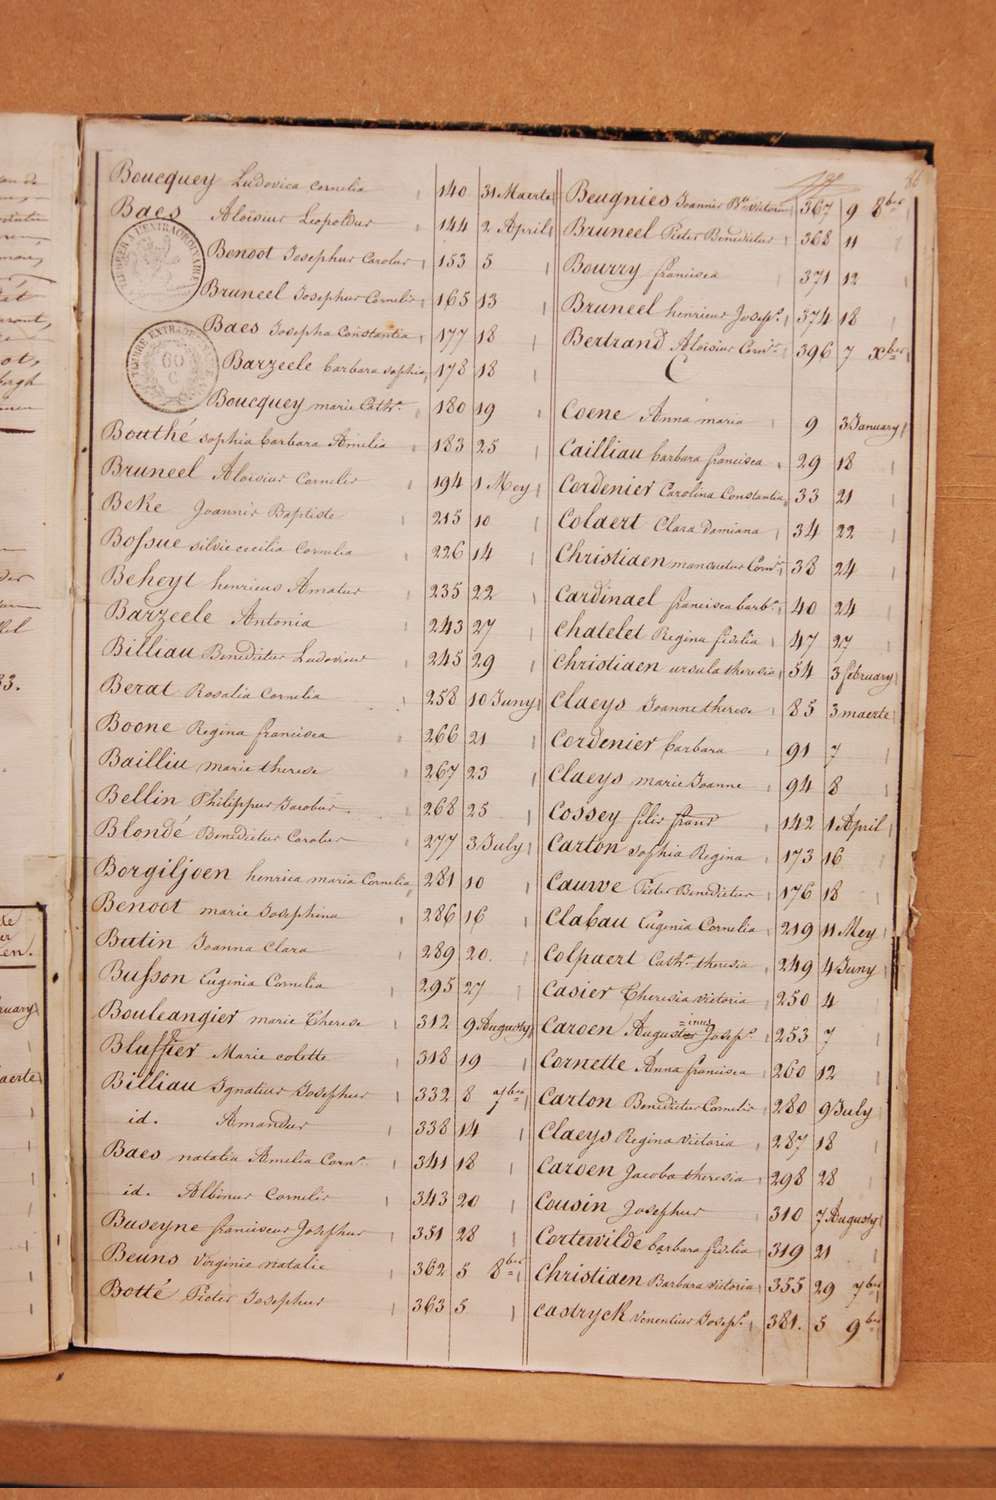 Boucquey Ludovica Cornelia 140 31 Maerte
Baes Aloisius Leopoldus 144 2 April
Benoot Josephus Carolus 153 5
Bruneel Josephus Cornelis 165 13
Baes Josepha Constantia 177 18
Barzeele barbara sophia 178 18
Boucquey marie Cathe. 180 19
Bouthé sophia barbara Amelia 183 25
Bruneel Aloisius Cornelis 194 1 Mey
Beke Joannis Baptiste 215 10
Bossue silvie cecilia Cornelia 226 14
Beheyt henricus Amatus 235 22
Barzeele Antonia 243 27
Billiau Benedictus Ludovicus 245 29
Berat Rosalia Cornelia 258 10 Juny
Boone Regina francisca 266 21
Bailliu marie therese 267 23
Bellin Philippus Jacobus 268 25
Blondé Benedictus Carolus 277 3 July
Borgiljoen henrica maria Cornelia 281 10
Benoot marie Josephina 286 16
Butin Joanna Clara 289 20.
Busson Eugenia Cornelia 295 27
Bouleangier marie Therese 312 9 Augusty
Bluffier Marie colette 318 19
Billiau Ignatius Josephus 332 8 7ber
id. Amandus 338 14
Baes natalia Amelia Corn. 341 18
id. Albinus Cornelis 343 20
Buseyne franciscus Josephus 351 28
Beuns Virginie natalie 362 5 8ber
Botté Pieter Josephus 363 5
Beugnies Joannis Bte victorin 367 9 8ber
Bruneel Pieter Benedictus 368 11
Bourry francisca 371 12
Bruneel henricus Joseps. 374 18
Bertrand Aloisius Corns. 396 7 Xber
C
Coene Anna maria 9 3 January
Cailliau barbara francisca 29 18
Cordenier Carolina Constantia 33 21
Colaert Clara Damiana 34 22
Christiaen mansuetus Corns. 38 24
Cardinael francisca barba. 40 24
Chatelet Regina fidelia 47 27
Christiaen ursula theresia 54 3 february
Claeys Joanne therese 85 3 maerte
Cordenier barbara 91 7
Claeys marie Joanne 94 8
Cossey felix frans 142 1 April
Carton sophia Regina 173 16
Cauwe Pieter Benedictus 176 18
Clabau Eugenia Cornelia 219 11 Mey
Colpaert Catha. theresia 249 4 Juny
Casier Theresia victoria 250 4
Caroen Augustinus Joseps. 253 7
Cornette Anna francisca 260 12
Carton Benedictus Cornelis 280 9 July
Claeys Regina victoria 287 18
Caroen Jacoba theresia 298 28
Cousin Josephus 310 7 Augusty
Cortewilde barbara fidelia 319 21
Christiaen Barbara victoria 355 29 7ber
Castryck venentius Joseps. 381. 5 9ber